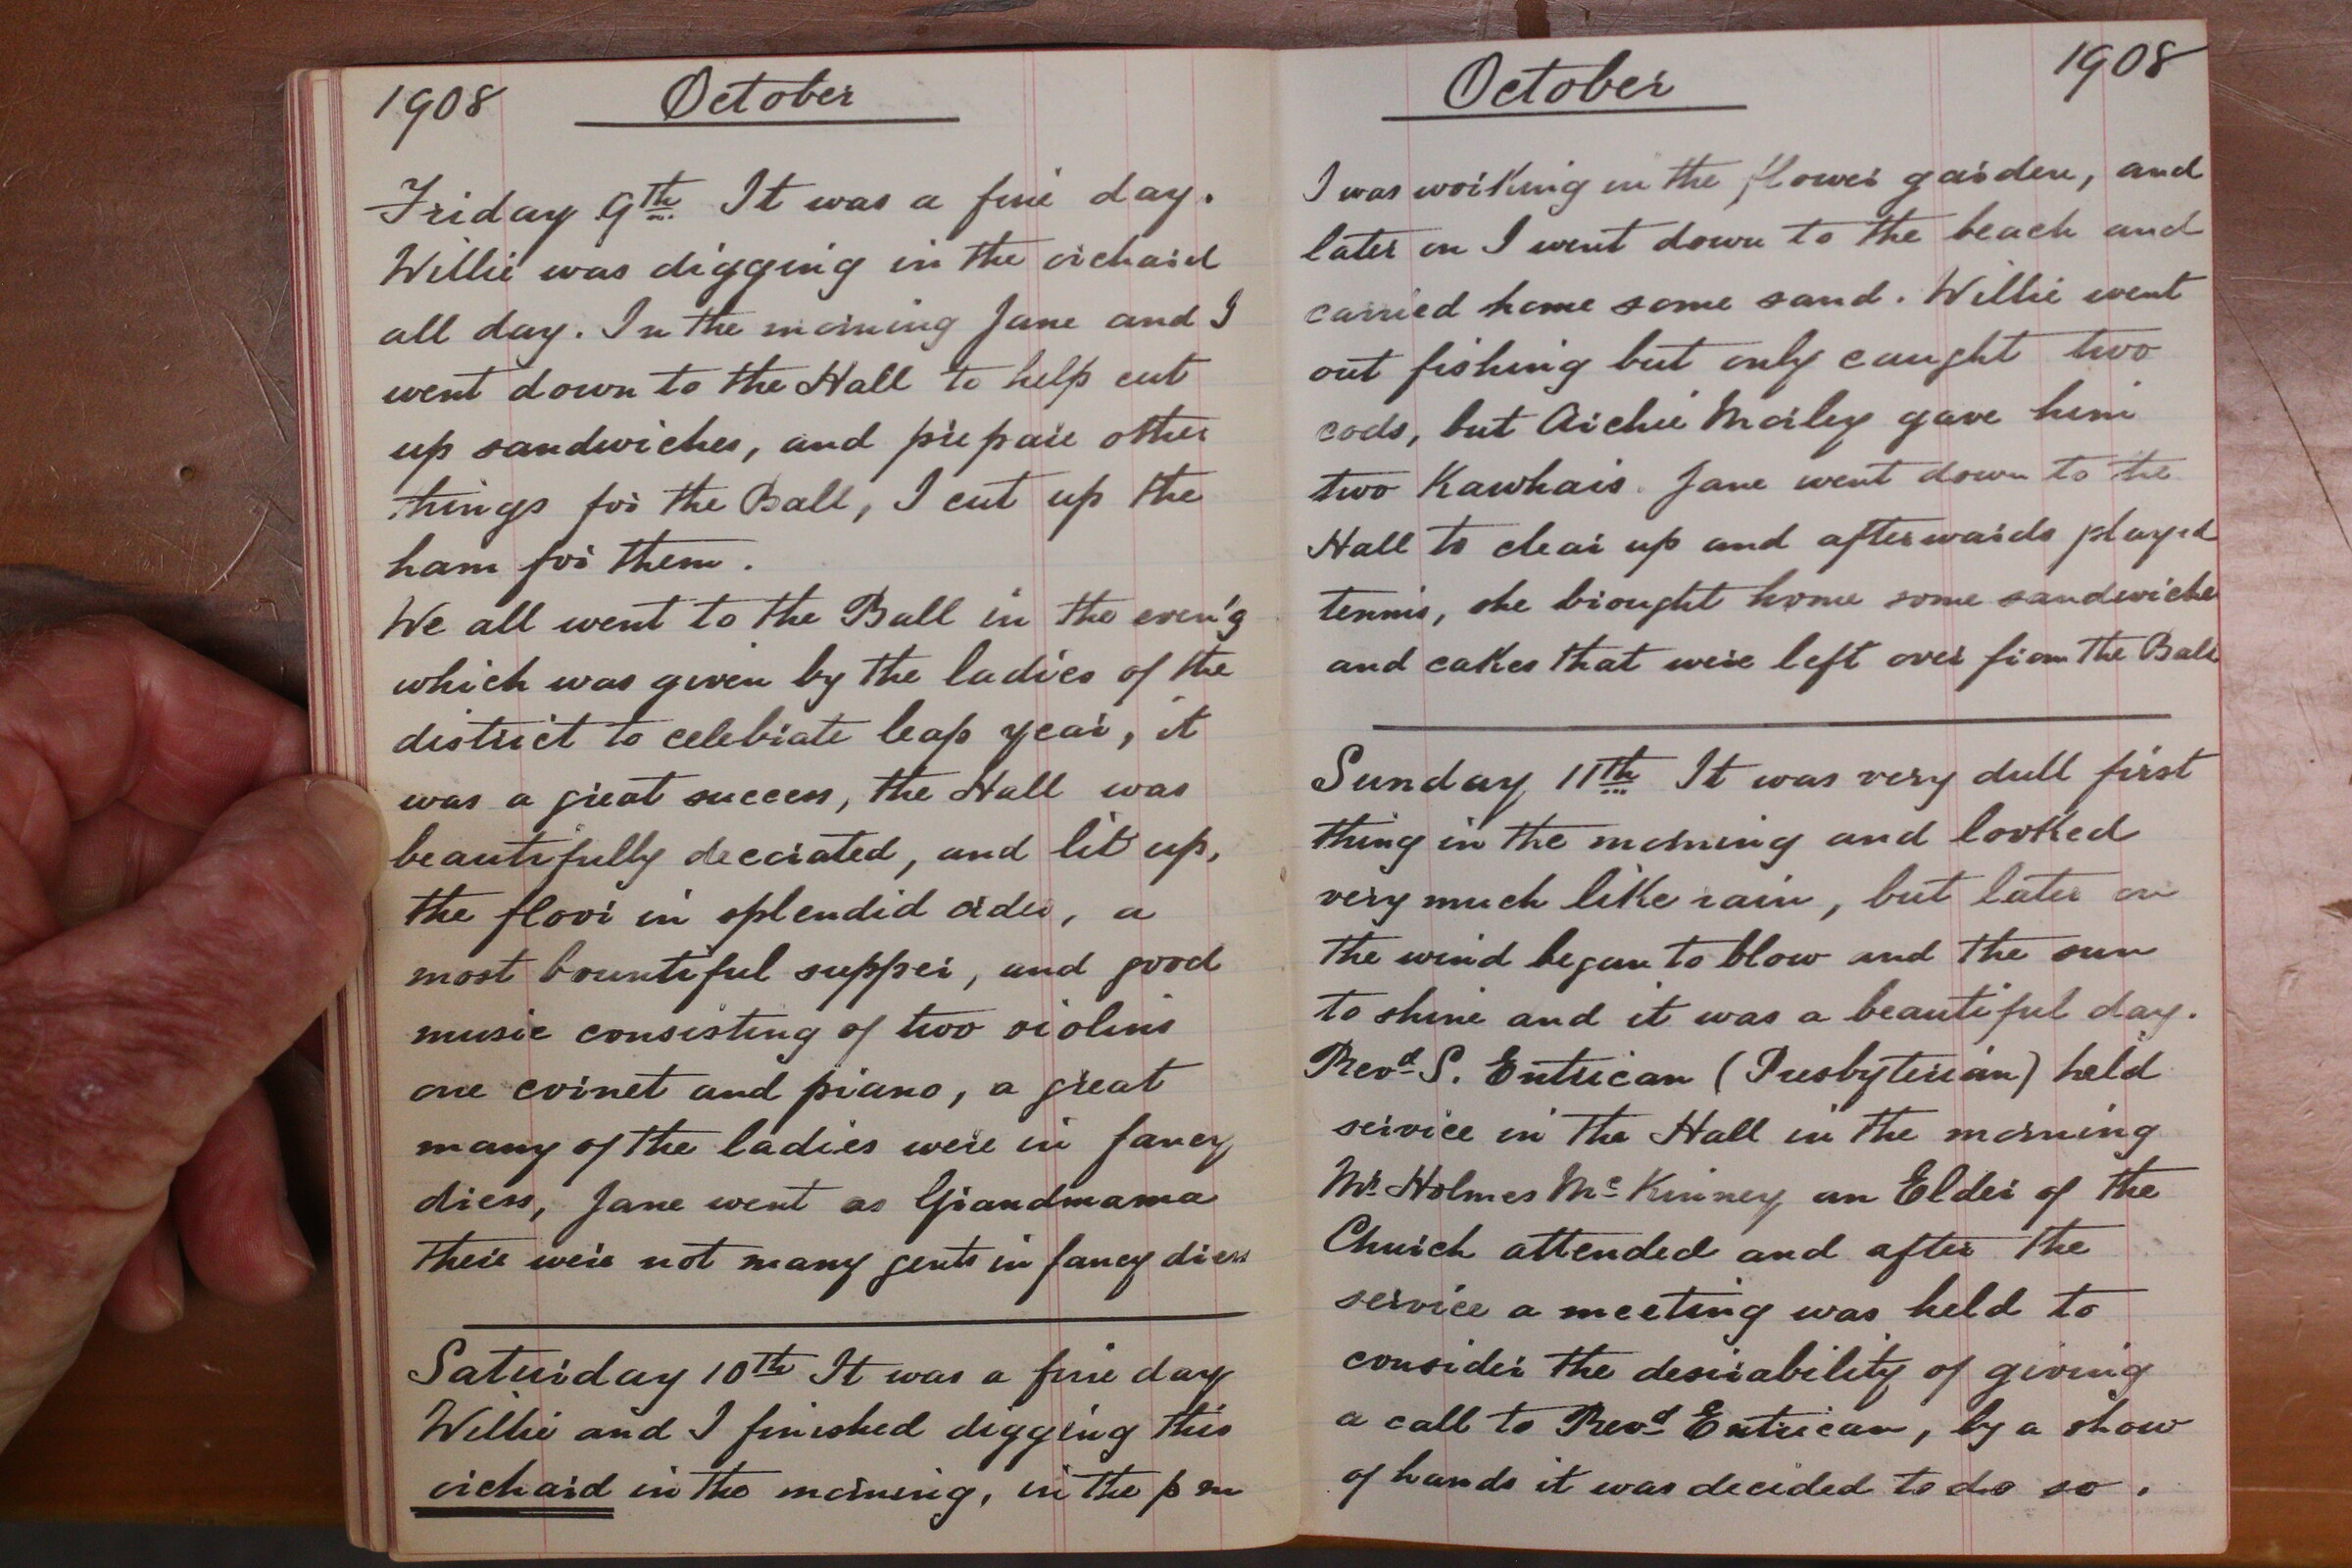 1908 October
Friday 9th It was a fine day.
Willie was digging in the orchard
all day. In the morning Jane and I
went down to the Hall to help cut
up sandwiches, and prepare other
things for the Ball, I cut up the
ham for them.
We all went to the Ball in the even'g
which was given by the ladies of the
district to celebrate leap year, it
was a great success, the Hall was
beautifully decorated, and lit up,
the floor in splendid order, a
most bountiful supper, and good
music consisting of two violins
one cornet and piano, a great
many of the ladies were in fancy
dress, Jane went as Grandmama
there were not many gents in fancy dress
Saturday 10th It was a fine day
Willie and I finished digging this
orchard in the morning, in the pm
October 1908
I was working in the flower garden, and
later on I went down to the beach and
carried home some sand. Willie went
out fishing but only caught two
cods, but Archie gave him
two Kawhais. Jane went down to the
Hall to clear up and afterwards played
tennis, she brought home some sandwiches
and cakes that were left over from the Ball
Sunday 11th It was very dull first
thing in the morning and looked
very much like rain, but later on
the wind began to blow and the sun
to shine and it was a beautiful day.
Revd S. Entrican (Presbyterian) held
service in the Hall in the morning
Mr Holmes McKinney an Elder of the
Church attended and after the
service a meeting was held to
consider the desirability of giving
a call to Revd Entrican, by a show
of hands it was decided to do so.